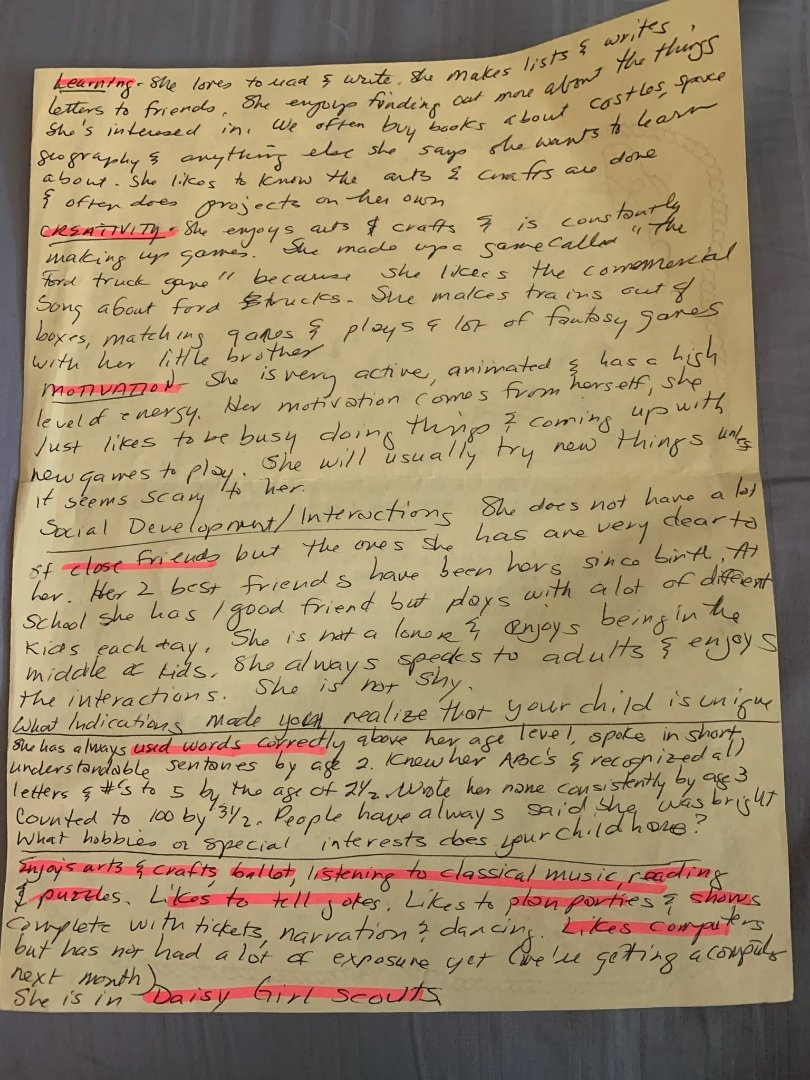 Learning - She loves to read & write. She makes lists & writes
letters to friends. She enjoys finding out more about the things
she's interesed in. We often buy books about castles, space
geography & anything else she says she wants to learn
about. She likes to know the arts & crafts are done
& often does projects on her own
CREATIVITY - She enjoys arts & crafts & is constantly
making up games. She made up a game called "The
Ford truck game" because she likes the commercial
song about ford trucks. She makes trains out of
boxes, matching games & plays a lot of fantasy games
with her little brother
MOTIVATION - She is very active, animated & has a high
level of energy. Her motivation comes from herself, she
just likes to be busy doing things & coming up with
new games to play. She will usually try new things unless
it seems scary to her.
Social Development/Interactions She does not have a lot
of close friends but the ones she has are very dear to
her. Her 2 best friends have been hers since birth. At
school she has 1 good friend but plays with a lot of different
kids each day. She is not a loner & enjoys being in the
middle of kids. She always speaks to adults & enjoys
the interactions. She is not shy.
What Indications made you realize that your child is unique
She has always used words correctly above her age level, spoke in short
understandable sentanes by age 2. Knew her ABC's & recognized all
letters & #'s to 5 by the age of 2½. Wrote her name consistently by age 3
Counted to 100 by 3½. People have always said she was bright
What hobbies or special interests does your child have?
Enjoys arts & crafts, ballet, listening to classical music, reading
& puzzles. Likes to tell jokes. Likes to plan parties & shows
complete with tickets, narration & dancing. Likes computers
but has not had a lot of exposure yet (we're getting a computer
next month)
She is in Daisy Girl Scouts